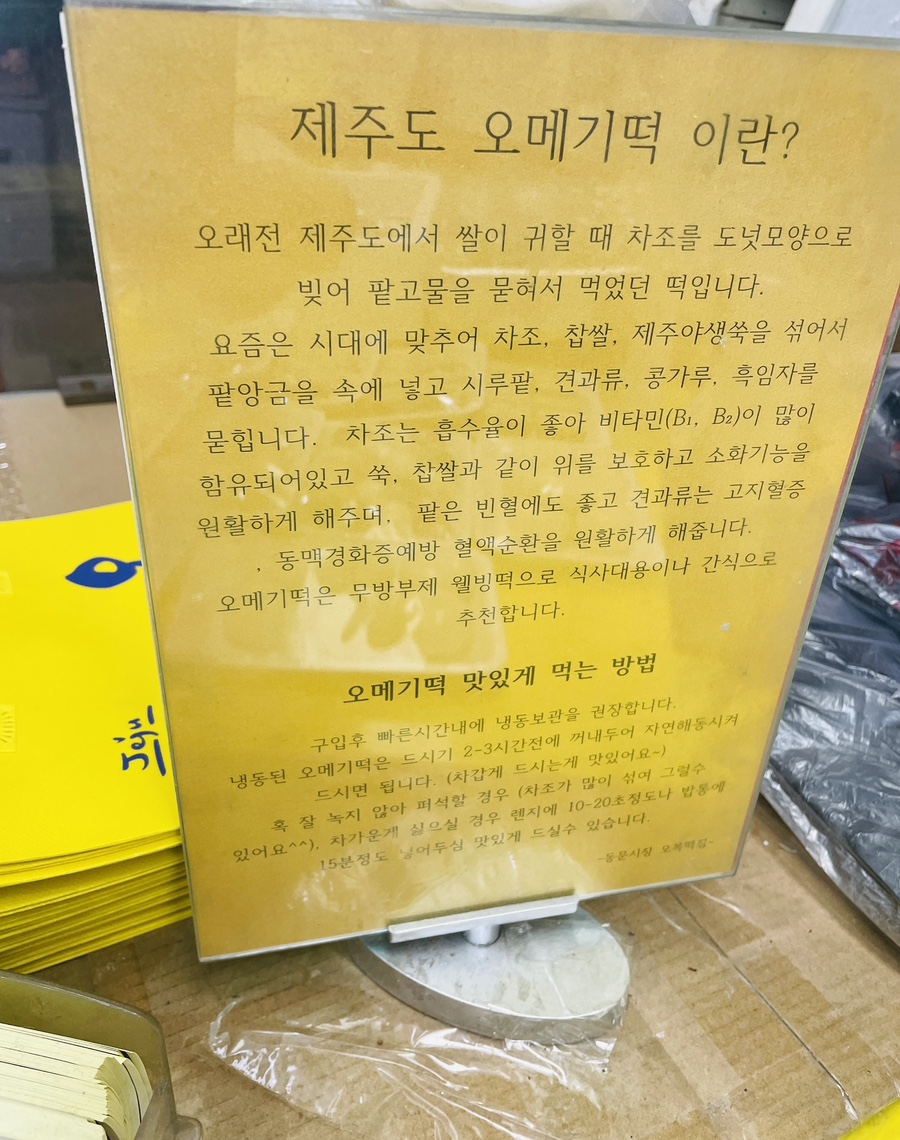 제주도 오메기떡 이란?
오래전 제주도에서 쌀이 귀할 때 차조를 도넛모양으로
빚어 팥고물을 묻혀서 먹었던 떡입니다.
요즘은 시대에 맞추어 차조, 찹쌀, 제주야생쑥을 섞어서
팥앙금을 속에 넣고 시루팥, 견과류, 콩가루, 흑임자를
묻힙니다. 차조는 흡수율이 좋아 비타민(B₁, B₂)이 많이
함유되어있고 쑥, 찹쌀과 같이 위를 보호하고 소화기능을
원활하게 해주며, 팥은 빈혈에도 좋고 견과류는 고지혈증
, 동맥경화증예방 혈액순환을 원활하게 해줍니다.
오메기떡은 무방부제 웰빙떡으로 식사대용이나 간식으로
추천합니다.
오메기떡 맛있게 먹는 방법
구입후 빠른시간내에 냉동보관을 권장합니다.
냉동된 오메기떡은 드시기 2-3시간전에 꺼내두어 자연해동시켜
드시면 됩니다. (차갑게 드시는게 맛있어요~)
혹 잘 녹지 않아 퍼석할 경우 (차조가 많이 섞여 그럴수
있어요^^), 차가운게 싫으실 경우 렌지에 10-20초정도나 밥통에
15분정도 넣어두심 맛있게 드실수 있습니다.
-동문시장 오복떡집-
Jeju